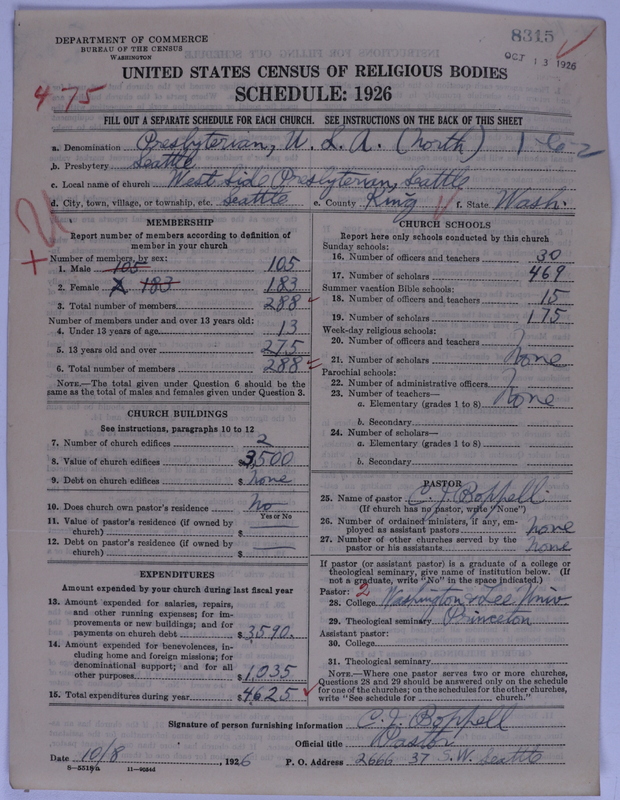 DEPARTMENT OF COMMERCE
BUREAU OF THE CENSUS
WASHINGTON
8315
OCT 13 1926
UNITED STATES CENSUS OF RELIGIOUS BODIES
SCHEDULE: 1926
475
FILL OUT A SEPARATE SCHEDULE FOR EACH CHURCH. SEE INSTRUCTIONS ON THE BACK OF THIS SHEET
a. Denomination Presbyterian, U. S. A. (North) 1-6-2
b. Presbytery Seattle
c. Local name of church West Side Presbyterian, Seattle
d. City, town, village, or township, etc. Seattle e. County King f. State Wash.
MEMBERSHIP
Report number of members according to definition of
member in your church
Number of members, by sex:
1. Male 105 105
2. Female 183 183
3. Total number of members 288
Number of members under and over 13 years old:
4. Under 13 years of age 13
5. 13 years old and over 275
6. Total number of members 288
NOTE.—The total given under Question 6 should be the
same as the total of males and females given under Question 3.
CHURCH BUILDINGS
See instructions, paragraphs 10 to 12
7. Number of church edifices 2
8. Value of church edifices $3,500
9. Debt on church edifices $ none
10. Does church own pastor's residence No
Yes or No
11. Value of pastor's residence (if owned by
church) $
12. Debt on pastor's residence (if owned by
church) $
EXPENDITURES
Amount expended by your church during last fiscal year
13. Amount expended for salaries, repairs,
and other running expenses; for im-
provements or new buildings; and for
payments on church debt $3590.
14. Amount expended for benevolences, in-
cluding home and foreign missions; for
denominational support; and for all
other purposes $1035
15. Total expenditures during year $4625
CHURCH SCHOOLS
Report here only schools conducted by this church
Sunday schools:
16. Number of officers and teachers 30
17. Number of scholars 469
Summer vacation Bible schools:
18. Number of officers and teachers 15
19. Number of scholars 175
Week-day religious schools:
20. Number of officers and teachers
21. Number of scholars None
Parochial schools:
22. Number of administrative officers
23. Number of teachers— None
a. Elementary (grades 1 to 8)
b. Secondary
24. Number of scholars—
a. Elementary (grades 1 to 8)
b. Secondary
PASTOR
25. Name of pastor C. J. Boppell
(If church has no pastor, write "None")
26. Number of ordained ministers, if any, em-
ployed as assistant pastors none
27. Number of other churches served by the
pastor or his assistants none
If pastor (or assistant pastor) is a graduate of a college or
theological seminary, give name of institution below. (If
not a graduate, write "No" in the space indicated.)
Pastor: 2
28. College Washington & Lee Univ.
29. Theological seminary Princeton
Assistant pastor:
30. College
31. Theological seminary
NOTE.—Where one pastor serves two or more churches,
Questions 28 and 29 should be answered only on the schedule
for one of the churches; on the schedules for the other churches,
write "See schedule for church."
Signature of person furnishing information C. J. Boppell
Official title Pastor
Date 10/8, 1926 P. O. Address 2666 37 S.W. Seattle
8—5518a 11—9264d